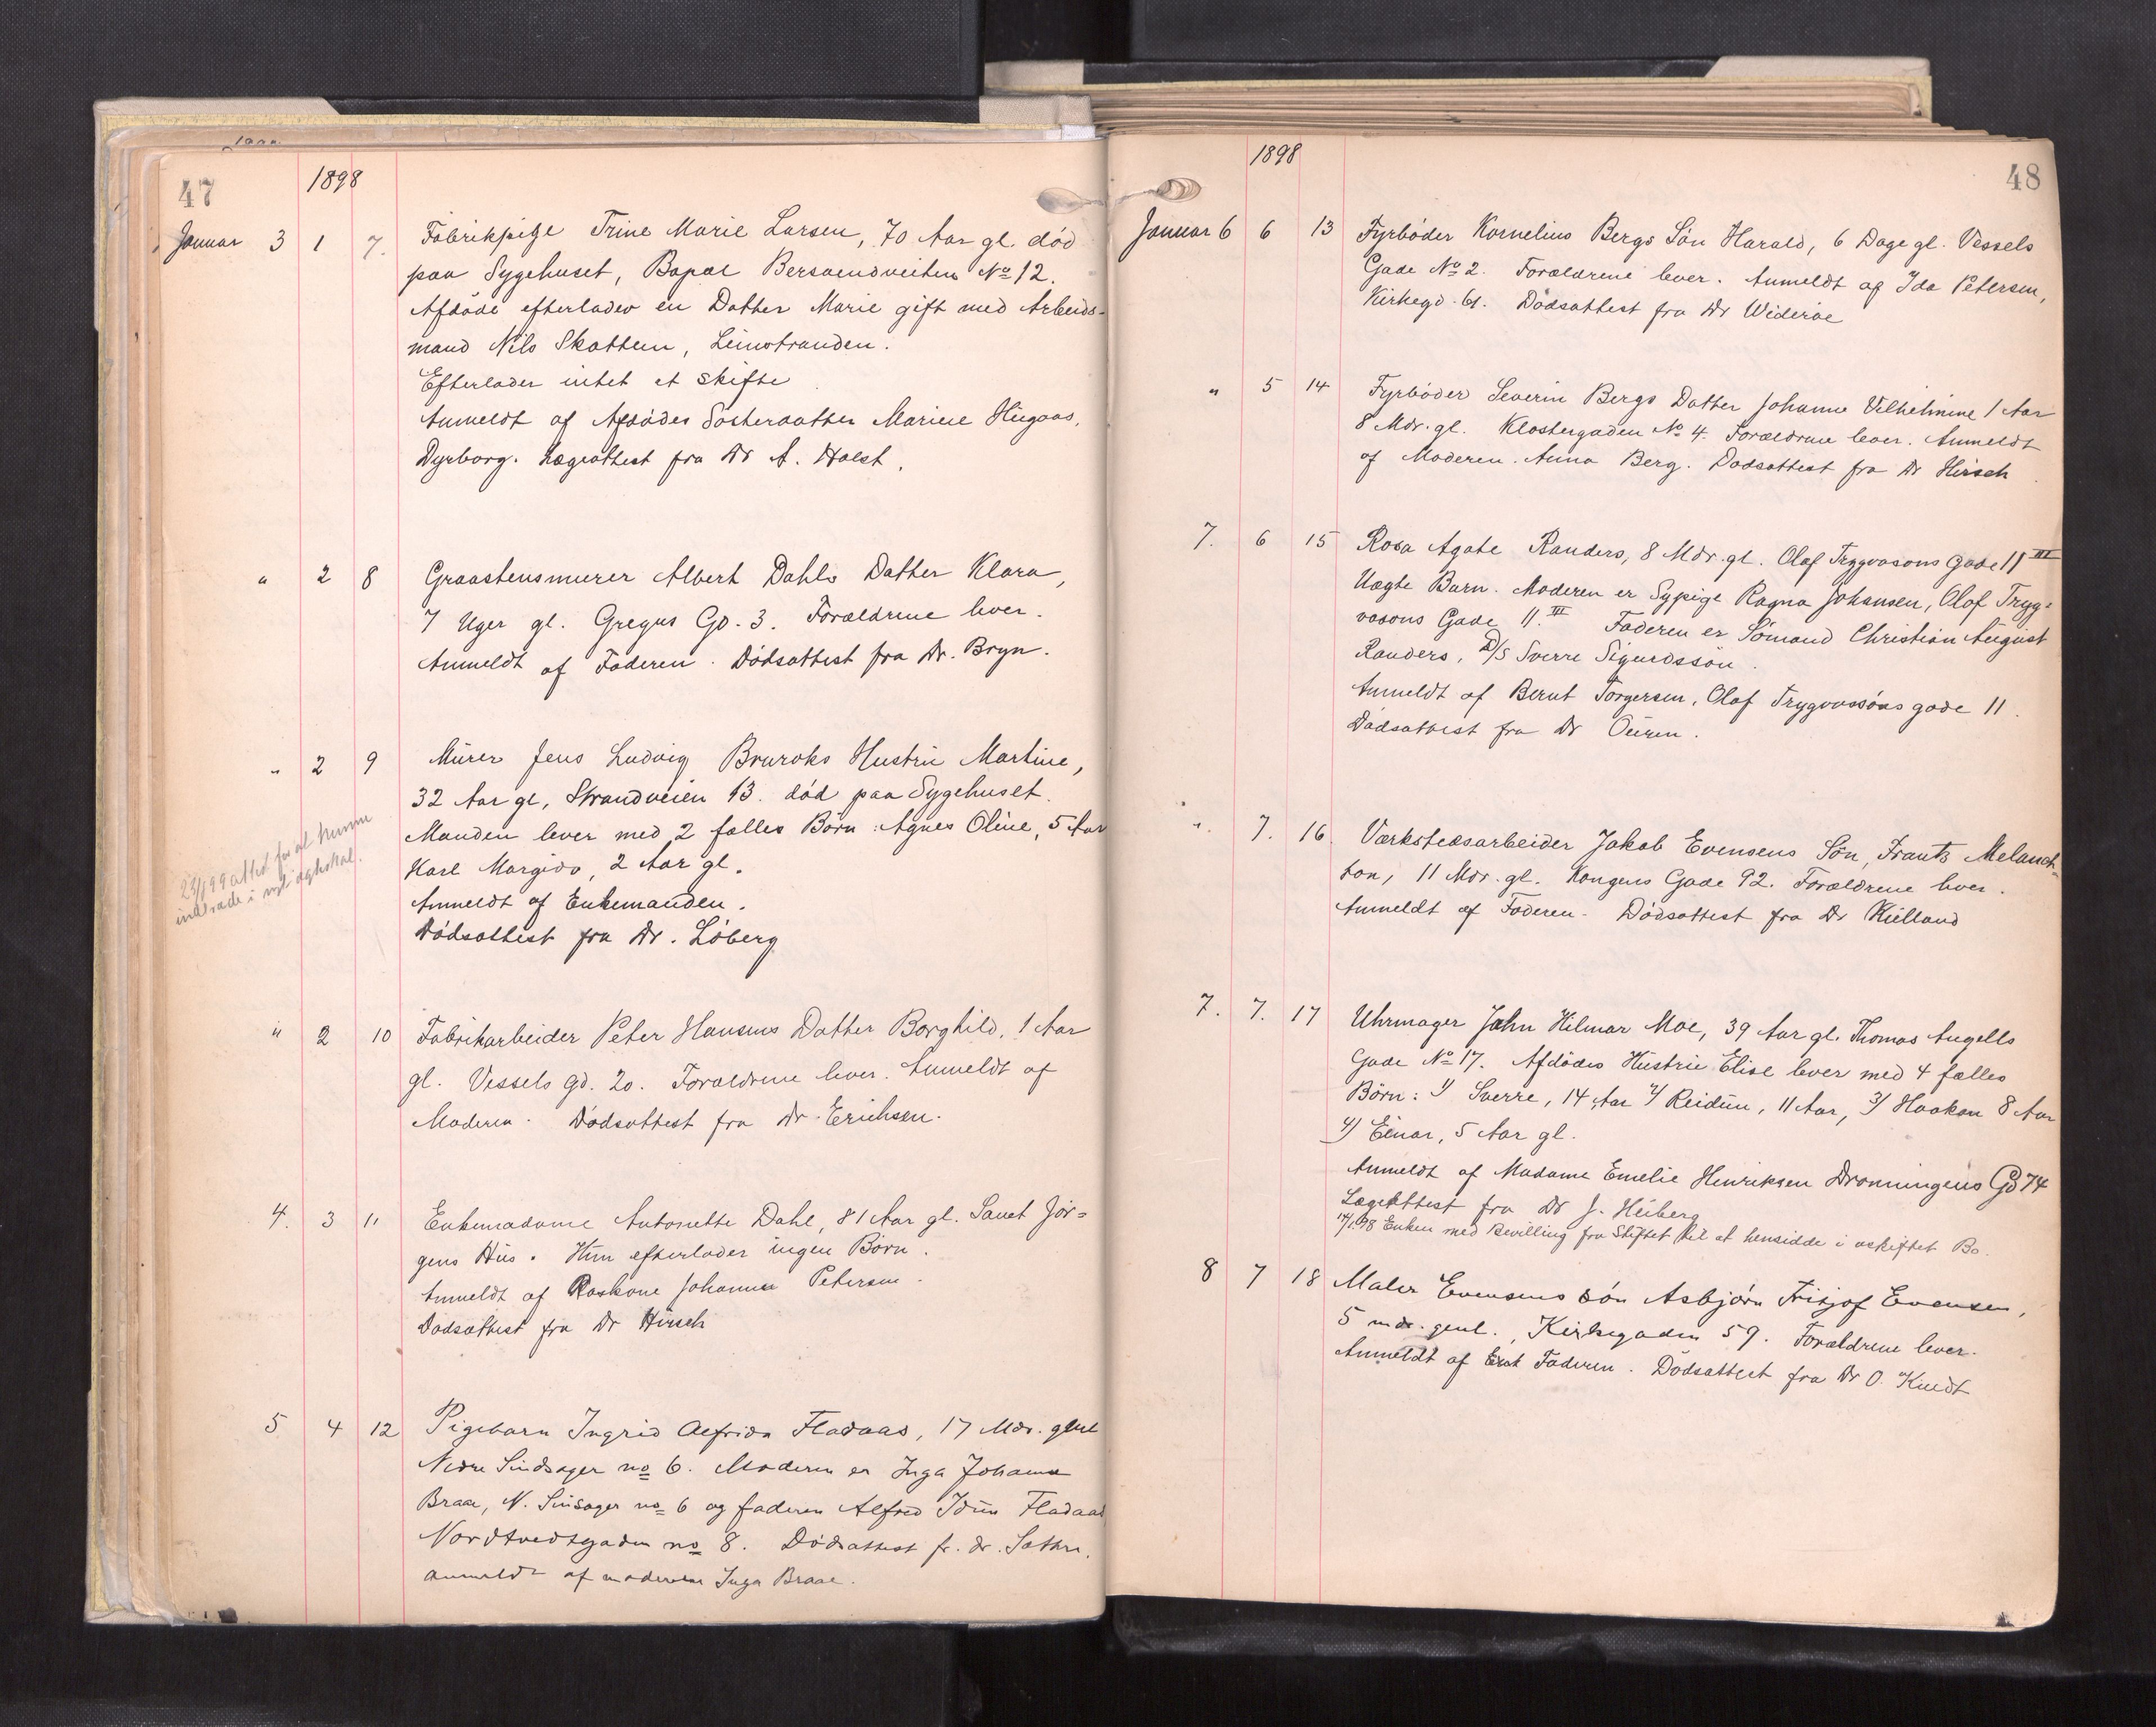 47
1898
Januar 3 1 7. Fabrikpige Trine Marie Larsen, 70 Aar gl. död
paa Sygehuset, Bopæl Bersvendveiten No 12.
Afdöde efterlader en Datter Marie gift med Arbeids-
mand Nils Skottem, Leinstranden.
Efterlader intet at skifte
Anmeldt af Afdödes Sösterdatter Marine Hugaas,
Dyrborg. Lægeattest fra Dr A. Holst.
" 2 8 Graastensmurer Albert Dahls Datter Klara,
7 Uger gl. Gregus Gd. 3. Forældrene lever.
Anmeldt af Faderen. Dödsattest fra Dr. Bryn.
" 2 9 Murer Jens Ludvig Bruroks Hustru Martine,
32 Aar gl, Strandveien 13. död paa Sygehuset.
Manden lever med 2 fælles Börn: Agnes Oline, 5 Aar
Karl Margido, 2 Aar gl.
Anmeldt af Enkemanden.
Dödsattest fra Dr. Löberg
23/1 99 attest for at kunne
indtræde i nyt ægteskab.
" 2 10 Fabrikarbeider Peter Hansens Datter Borghild, 1 Aar
gl. Vessels gd. 20. Forældrene lever. Anmeldt af
Moderen. Dödsattest fra Dr. Erichsen.
4. 3 11 Enkemadame Antonette Dahl, 81 Aar gl. Sanct Jör=
gens Hus. Hun efterlader ingen Börn.
Anmeldt af Roskone Johanna Petersen.
Dödsattest fra Dr Hirsch
5 4 12 Pigebarn Ingrid Alfrida Fladaas, 17 Mdr. gml
Nedre Sindsager no 6. Moderen er Inga Johanna
Braae, N. Sinsager no 6 og faderen Alfred Idun Fladaas
Nordtvedtgaden no 8. Dödsattest fr. dr. Sathre.
anmeldt af moderen Inga Braae.
48
1898
Januar 6 6 13 Fyrböder Kornelius Bergs Sön Harald, 6 Dage gl. Vessels
Gade No 2. Forældrene lever. Anmeldt af Ida Petersen,
Kirkegd. 61. Dödsattest fra Dr Wideröe
" 5 14 Fyrböder Severin Bergs Datter Johanne Vilhelmine 1 Aar
8 Mdr. gl. Klostergaden No 4. Forældrene lever. Anmeldt
af Moderen Anna Berg. Dödsattest fra Dr Hirsch
7. 6 15 Rosa Agate Randers, 8 Mdr. gl. Olaf Trygvasons Gade 11 III
Uægte Barn. Moderen er Sypige Ragna Johansen, Olaf Tryg=
vasons Gade 11. III Faderen er Sömand Christian August
Randers, D/S Sverre Sigurdssön.
Anmeldt af Bernt Torgersen, Olaf Trygvassöns gade 11.
Dödsattest fra Dr Ouren.
". 7. 16. Værkstedsarbeider Jakob Evensens Sön, Frantz Melanch=
ton, 11 Mdr. gl. Kongens Gade 92. Forældrene lever.
Anmeldt af Faderen. Dödsattest fra Dr Kielland
7. 7. 17 Uhrmager John Hilmar Moe, 39 Aar gl. Thomas Angells
Gade No 17. Afdödes Hustru Elise lever med 4 fælles
Börn: 1/ Sverre, 14 Aar 2/ Reidun, 11 Aar, 3/ Haakon 8 Aar
4) Einar, 5 Aar gl.
Anmeldt af Madame Emelie Henriksen Dronningens Gd 74
Lægeattest fra Dr J. Heiberg
14/1.98 Enken med Bevilling fra Stiftet til at hensidde i uskiftet Bo.
8 7 18 Maler Evensens sön Asbjörn Fritjof Evensen,
5 mdr. gml., Kirkegaden 59. Forældrene lever.
Anmeldt af Faderen. Dödsattest fra Dr O. Kindt